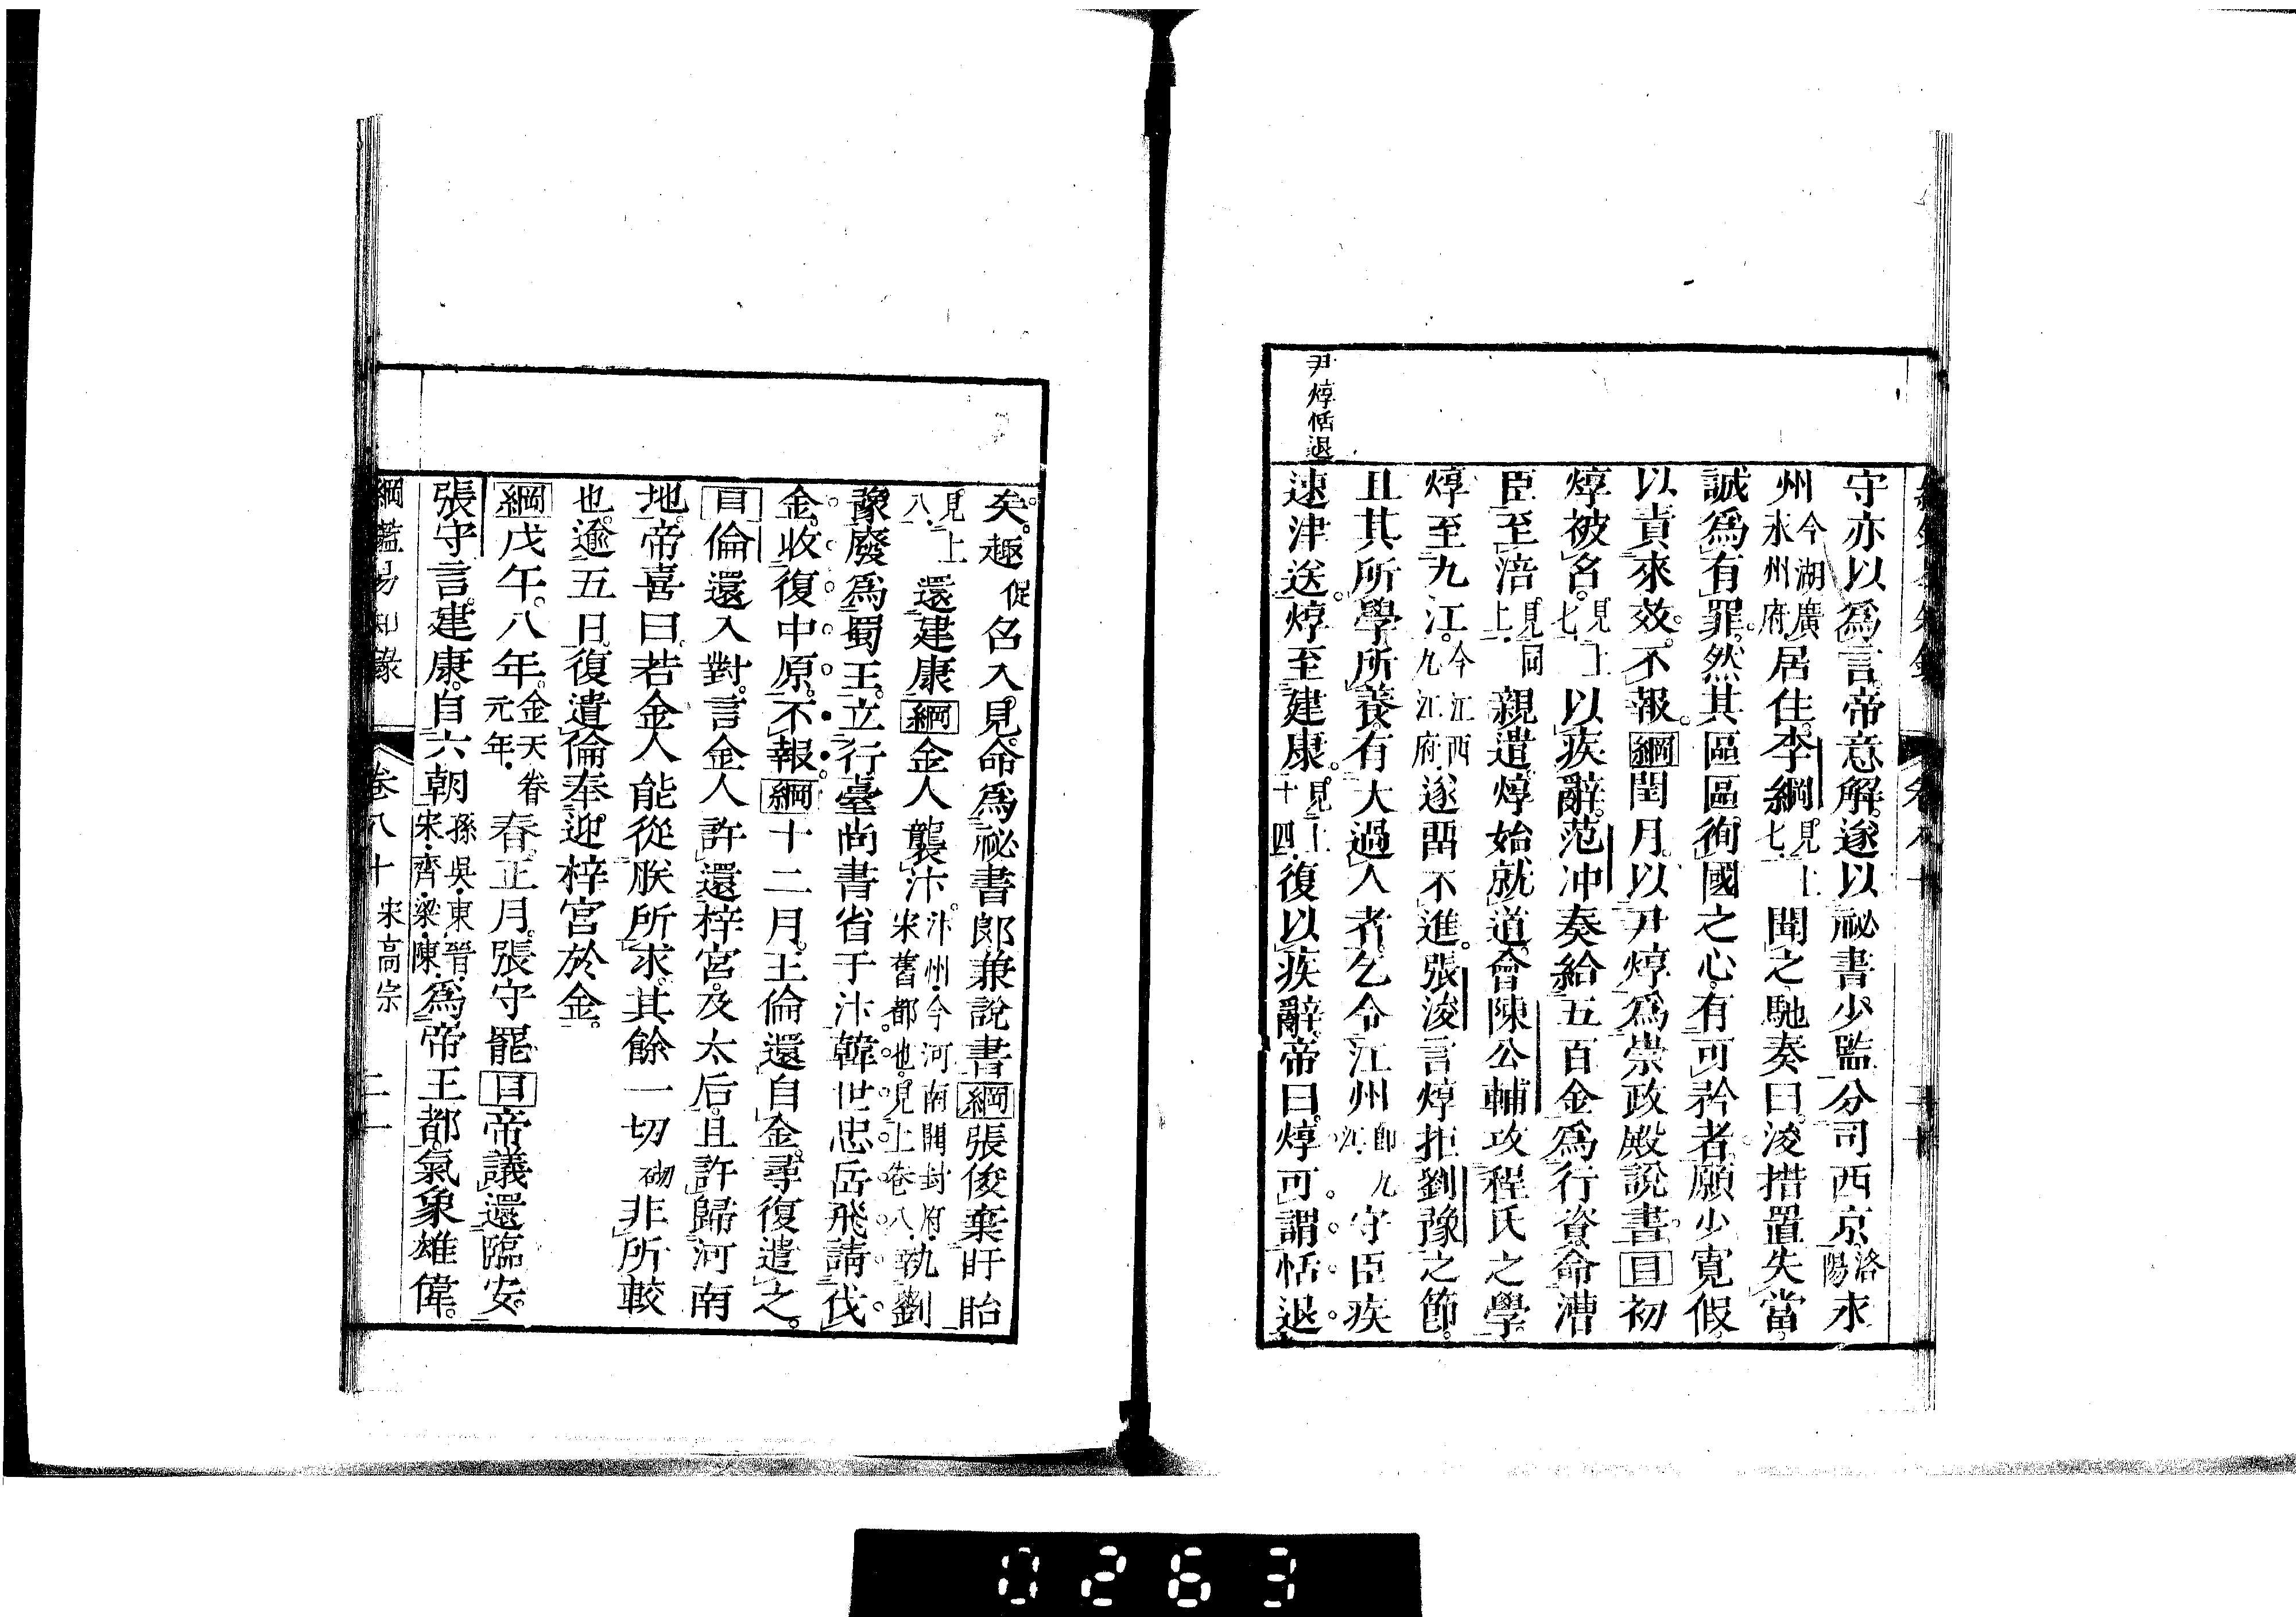 尹焞恬退
守亦以爲言。帝意解。遂以祕書少監分司西京。洛陽永
州今湖廣永州府。居住。李綱見上七。聞之馳奏曰。浚措置失當。
誠爲有罪。然其區區徇國之心。有可矜者。願少寬假。
以責來效。不報。綱閏月。以尹焞爲崇政殿說書。目初
焞被召。見上七。以疾辭。范冲奏給五百金爲行資。命漕
臣至涪見同上。親遣。焞始就道。會陳公輔攻程氏之學。
焞至九江。今江西九江府。遂留不進。張浚言焞拒劉豫之節。
且其所學所養。有大過人者。乞令江州卽九江。守臣疾
速津送。焞至建康。見上十四。復以疾辭。帝曰。焞可謂恬退
矣。趣促召入見。命爲祕書郎兼說書綱張俊棄盱眙
見上八。還建康綱金人襲汴。汴州。今河南開封府。宋舊都也。見上卷八。執劉
豫廢爲蜀王。立行臺尚書省于汴韓世忠岳飛請伐
金。收復中原。不報綱十二月。王倫還自金。尋復遣之。
目倫還入對。言金人許還梓宮。及太后。且許歸河南
地。帝喜曰。若金人能從朕所求。其餘一切砌非所較
也。逾五日。復遣倫奉迎梓宮於金。
綱戊午。八年。金天眷元年。春。正月。張守罷目帝議還臨安。
張守言。建康自六朝孫吳。東晉。宋。齊。梁。陳。爲帝王都。氣象雄偉。
綱鑑易知錄 卷八十 宋高宗 二一
0263